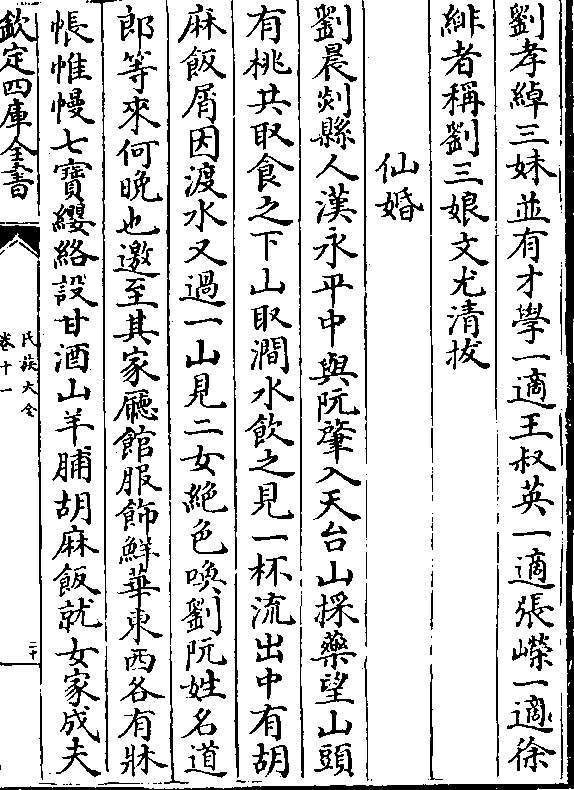 劉孝綽三妹並有才學一適王叔英一適張嶸一適徐
緋者稱劉三娘文尤清拔
仙婚
劉晨剡縣人漢永平中與阮肇入天台山採藥望山頭
有桃共取食之下山取澗水飲之見一杯流出中有胡
麻飯屑因渡水又過一山見二女絶色喚劉阮姓名道
郎等來何晚也邀至其家廳館服飾鮮華東西各有牀
帳帷幔七寶纓絡設甘酒山羊脯胡麻飯就女家成夫
欽定四庫全書
氏族大全
卷十一
二十